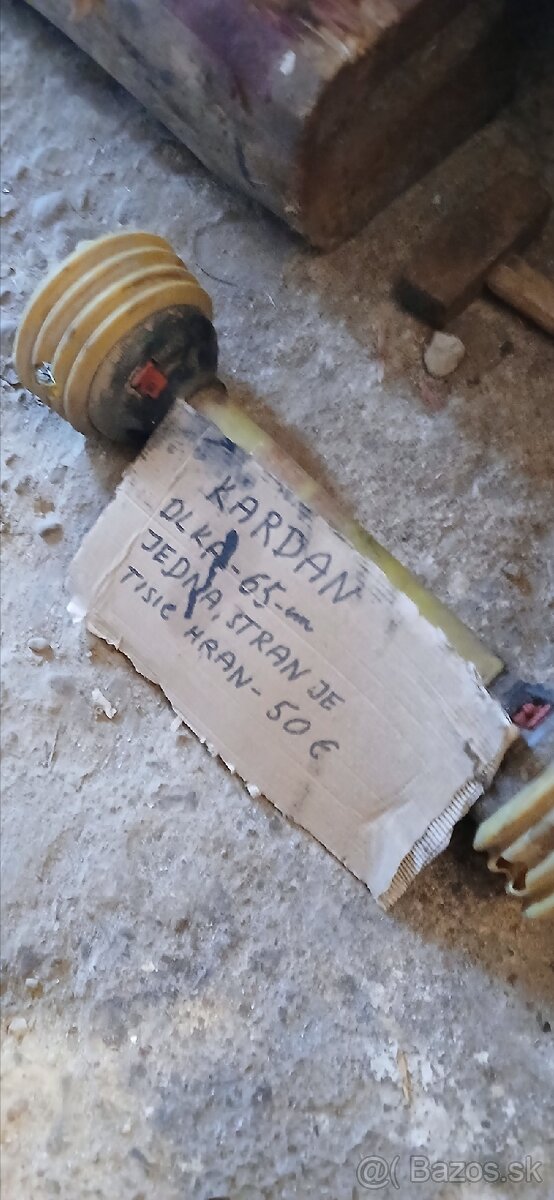 KARDAN
DLKA-65-cm
JEDNA, STRAN JE
TISIC HRAN- 50€
@( Bazos.sk